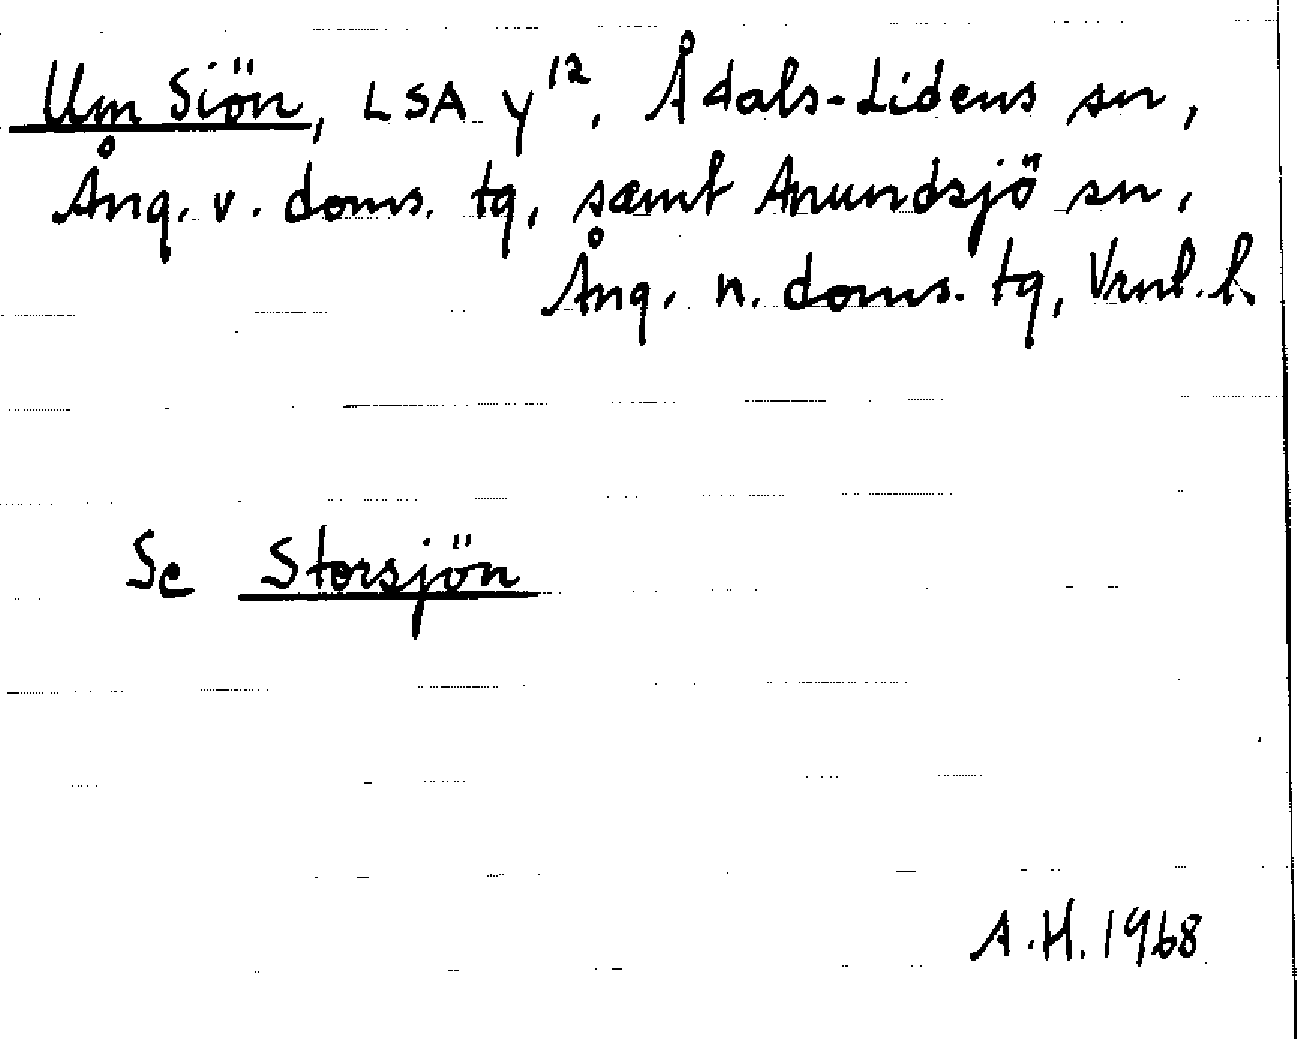 Um Siön, LSA y¹². Ådals-Lidens sn,
Ång. v. doms. tg, samt Anundsjö sn,
Ång. n. doms. tg, Vrnl. l.
Se Storsjön
A.H. 1968